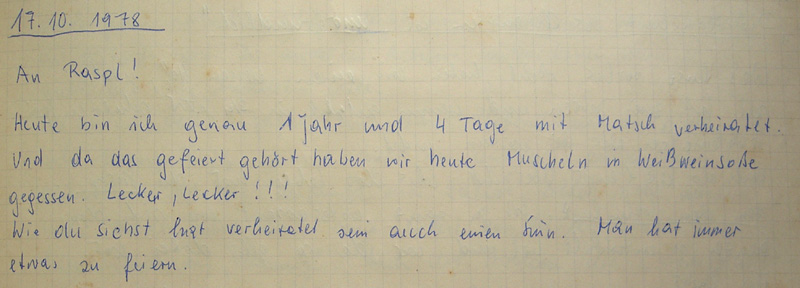 17.10. 1978
An Raspl!
Heute bin ich genau 1 Jahr und 4 Tage mit Matsch verheiratet.
Und da das gefeiert gehört haben wir heute Muscheln in Weißweinsoße
gegessen. Lecker, Lecker!!!
Wie du siehst hat verheiratet sein auch einen Sinn. Man hat immer
etwas zu feiern.